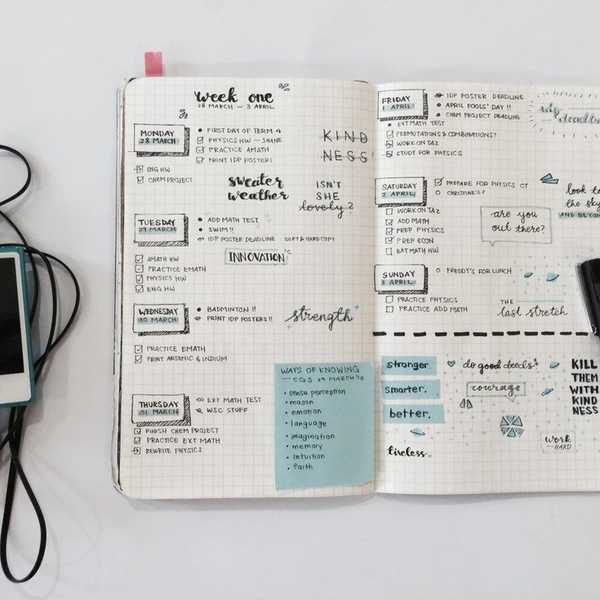 week one
28 MARCH — 3 APRIL
MONDAY
28 MARCH
FIRST DAY OF TERM 4
PHYSICS HW — SHANE
PRACTICE AMATH
PRINT IDP POSTER!
ENG HW
CHEM PROJECT
KIND
NESS
sweater
weather
ISN'T
SHE
lovely?
TUESDAY
29 MARCH
ADD MATH TEST
SWIM!!
IDP POSTER DEADLINE SOFT & HARD COPY
INNOVATION
AMATH HW
PRACTICE EMATH
PHYSICS HW
ENG HW
WEDNESDAY
30 MARCH
BADMINTON!!
PRINT IDP POSTERS!!
strength
PRACTICE EMATH
PRINT ARSENIC & INDIUM
THURSDAY
31 MARCH
EXT MATH TEST
WSC STUFF
FINISH CHEM PROJECT
PRACTICE EXT MATH
REWRITE PHYSICS
WAYS OF KNOWING
sense perception
reason
emotion
language
imagination
memory
intuition
faith
FRIDAY
1 APRIL
IDP POSTER DEADLINE
APRIL FOOLS' DAY!!
CHEM PROJECT DEADLINE
EXT MATH TEST
PERMUTATIONS & COMBINATIONS?
WORK ON SA2
STUDY FOR PHYSICS
SATURDAY
2 APRIL
PREPARE FOR PHYSICS CT
CHRISTINE'S!
WORK ON SA2
ADD MATH
PREP PHYSICS
PREP ECON
EXT MATH HW
are you
out there?
look to
the sky
AND BEYON
SUNDAY
3 APRIL
FREDDY'S FOR LUNCH
PRACTICE PHYSICS
PRACTICE ADD MATH
THE
last stretch
stronger.
smarter.
better.
tireless.
do good deeds
courage
WORK
HARD
KILL
THEM
WITH
KIND
NESS